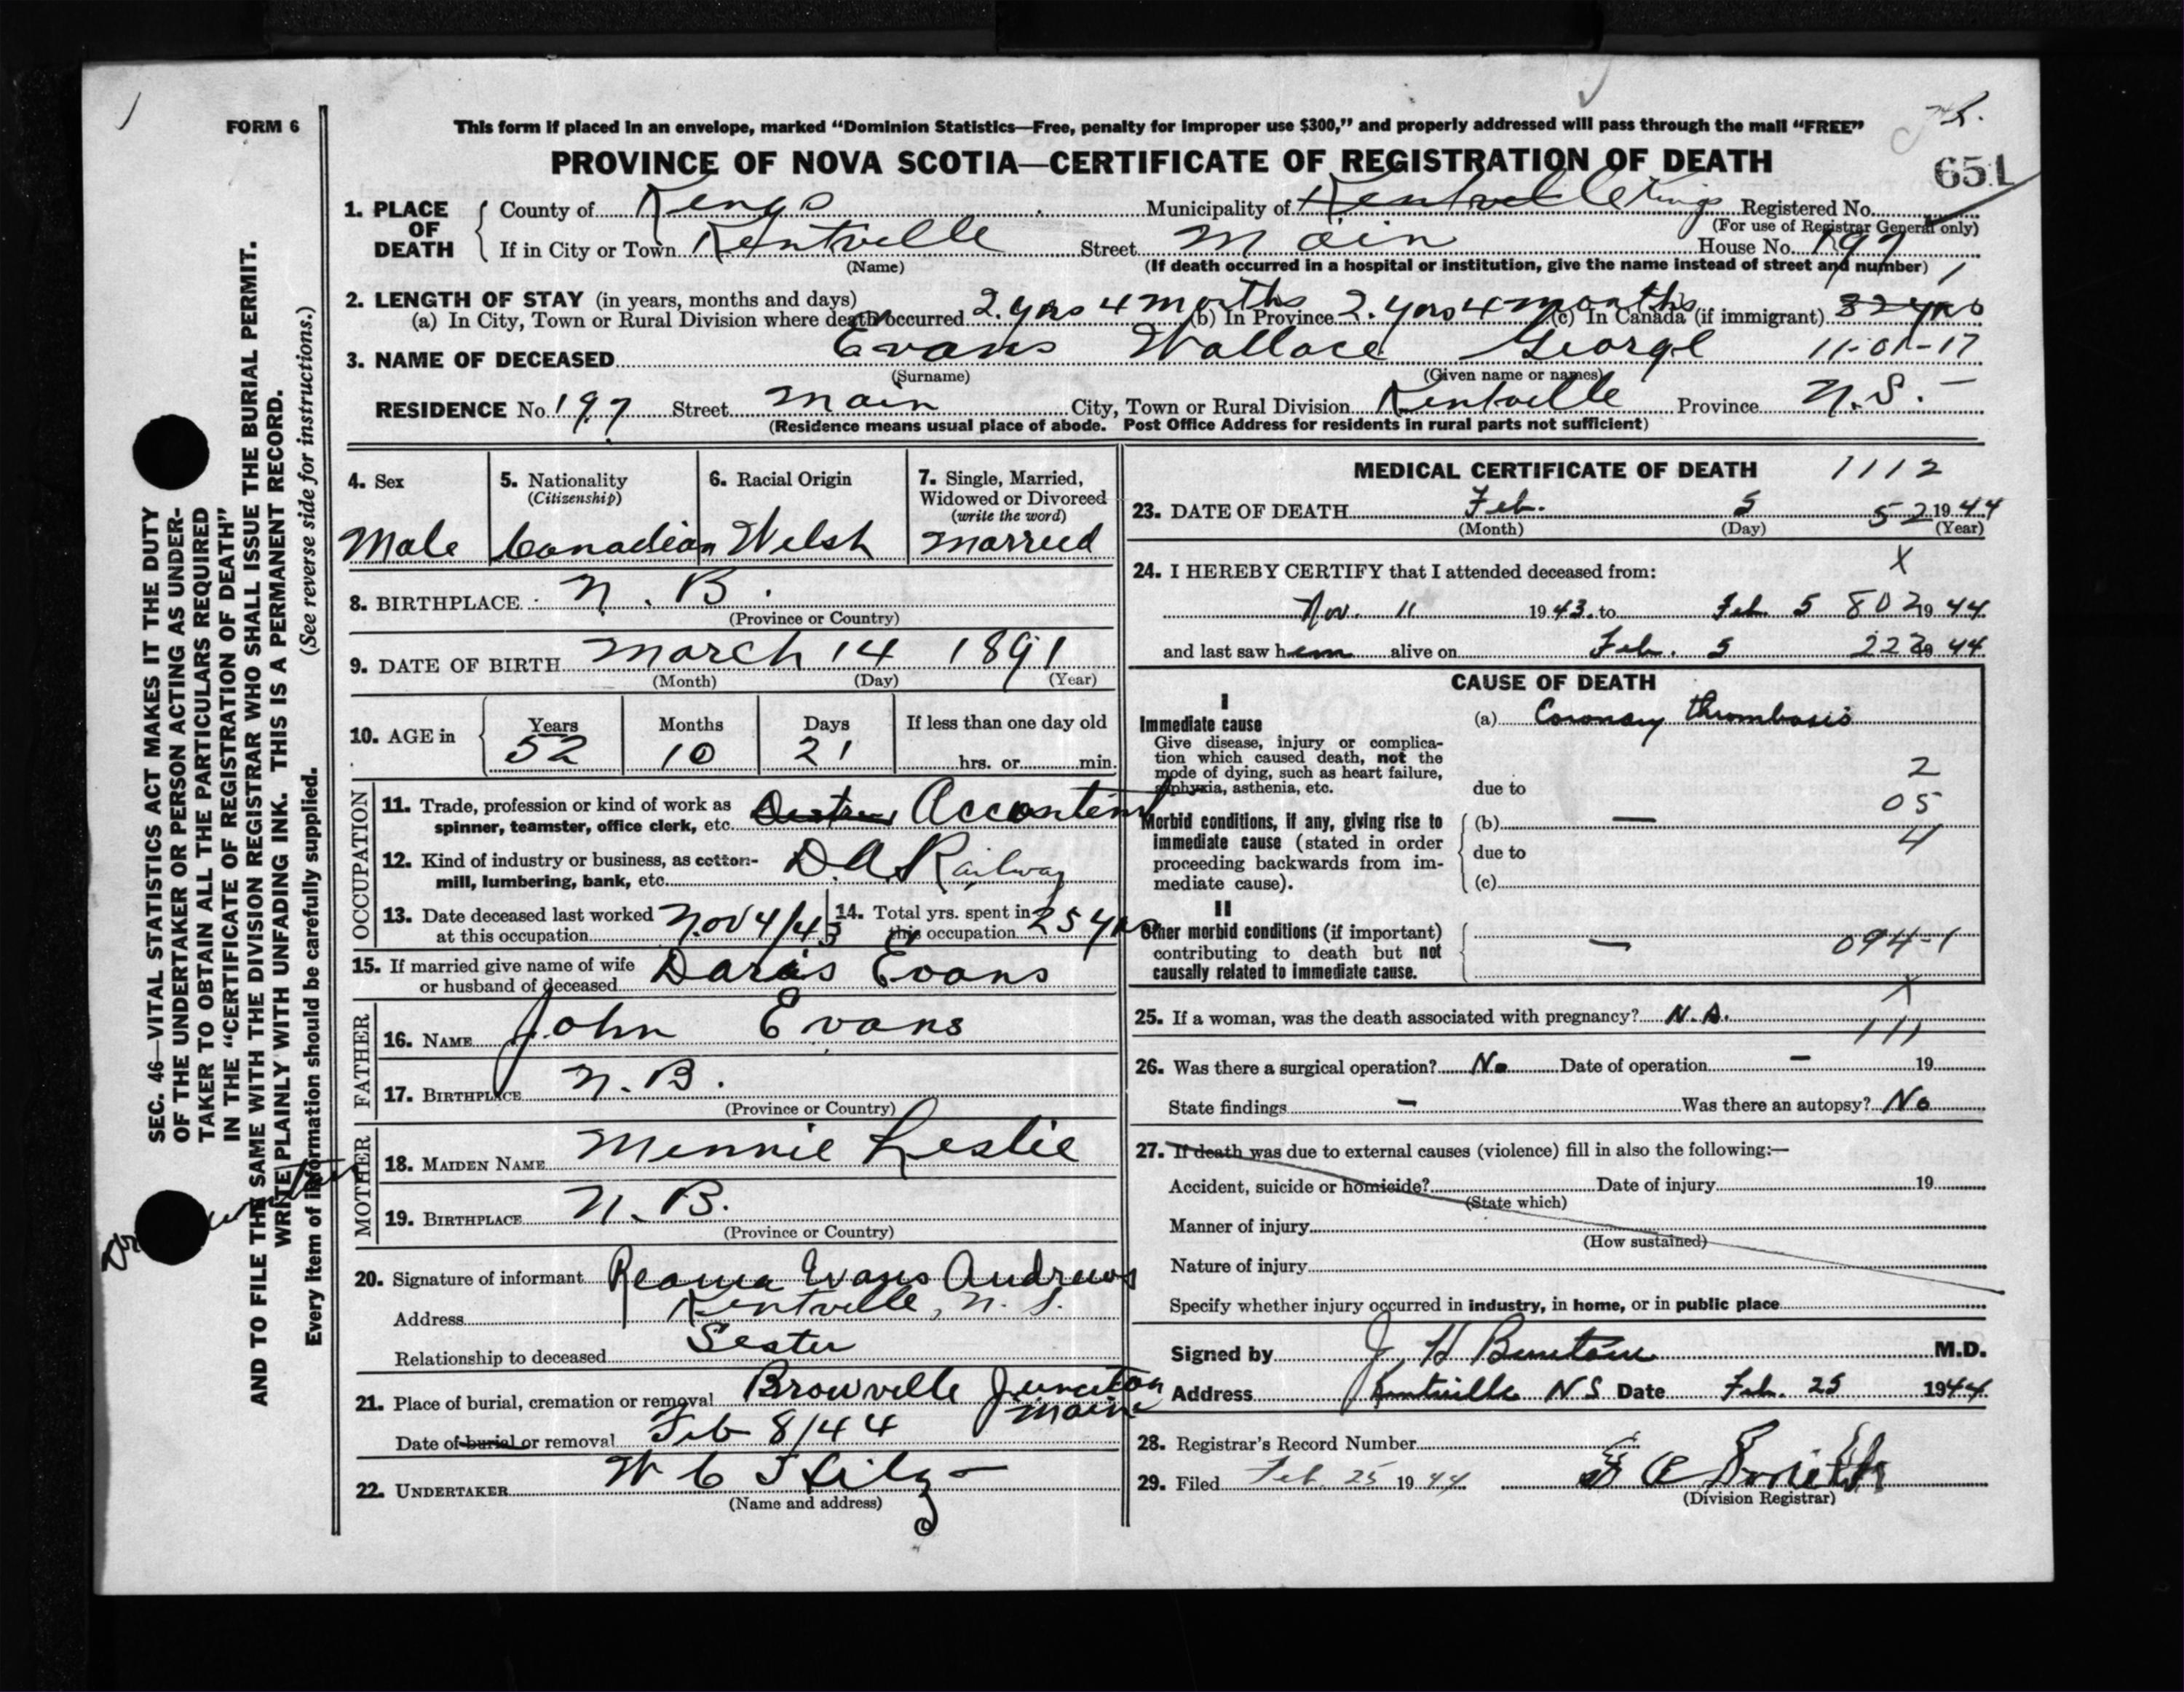 FORM 6
This form if placed in an envelope, marked "Dominion Statistics—Free, penalty for improper use $300," and properly addressed will pass through the mail "FREE"
PROVINCE OF NOVA SCOTIA—CERTIFICATE OF REGISTRATION OF DEATH
651
1. PLACE OF DEATH
County of Kings Municipality of Kentville Kings Registered No.
(For use of Registrar General only)
If in City or Town Kentville Street Main House No. 197
(Name) (If death occurred in a hospital or institution, give the name instead of street and number)
2. LENGTH OF STAY (in years, months and days)
(a) In City, Town or Rural Division where death occurred 2. yrs 4 months (b) In Province 2. yrs 4 months (c) In Canada (if immigrant)
3. NAME OF DECEASED Evans Wallace George 11-01-17
(Surname) (Given name or names)
RESIDENCE No. 197 Street Main City, Town or Rural Division Kentville Province N.S.
(Residence means usual place of abode. Post Office Address for residents in rural parts not sufficient)
4. Sex
Male
5. Nationality
(Citizenship)
Canadian
6. Racial Origin
Welsh
7. Single, Married,
Widowed or Divorced
(write the word)
Married
8. BIRTHPLACE N. B.
(Province or Country)
9. DATE OF BIRTH March 14 1891
(Month) (Day) (Year)
10. AGE in Years Months Days If less than one day old
52 10 21 hrs. or min.
OCCUPATION
11. Trade, profession or kind of work as
spinner, teamster, office clerk, etc. Accontent
12. Kind of industry or business, as cotton-
mill, lumbering, bank, etc. D.A. Railway
13. Date deceased last worked
at this occupation Nov 4/43
14. Total yrs. spent in
this occupation 25 yrs
15. If married give name of wife
or husband of deceased Daris Evans
FATHER
16. NAME John Evans
17. BIRTHPLACE N. B.
(Province or Country)
MOTHER
18. MAIDEN NAME Minnie Leslie
19. BIRTHPLACE N. B.
(Province or Country)
20. Signature of informant Evans Andrews
Address Kentville, N. S.
Relationship to deceased Sister
21. Place of burial, cremation or removal Browville Junction
Maine
Date of burial or removal Feb 8/44
22. UNDERTAKER W C
(Name and address)
MEDICAL CERTIFICATE OF DEATH 1112
23. DATE OF DEATH Feb. 5 52 1944
(Month) (Day) (Year)
X
24. I HEREBY CERTIFY that I attended deceased from:
Nov. 11 1943 to Feb 5 802 1944
and last saw him alive on Feb. 5 1944
CAUSE OF DEATH
I
Immediate cause (a) Coronary thrombosis
Give disease, injury or complica-
tion which caused death, not the
mode of dying, such as heart failure,
asphyxia, asthenia, etc. due to
2
05
4
Morbid conditions, if any, giving rise to
immediate cause (stated in order
proceeding backwards from im-
mediate cause).
(b) —
due to
(c)
II
Other morbid conditions (if important)
contributing to death but not
causally related to immediate cause. — 094-1
X
25. If a woman, was the death associated with pregnancy? N. A.
111
26. Was there a surgical operation? No Date of operation – 19
State findings - Was there an autopsy? No
27. If death was due to external causes (violence) fill in also the following:—
Accident, suicide or homicide? Date of injury 19
(State which)
Manner of injury
(How sustained)
Nature of injury
Specify whether injury occurred in industry, in home, or in public place
Signed by J. H M.D.
Address Kentville N S Date Feb. 25 1944
28. Registrar's Record Number
29. Filed Feb. 25 1944
(Division Registrar)
SEC. 46—VITAL STATISTICS ACT MAKES IT THE DUTY
OF THE UNDERTAKER OR PERSON ACTING AS UNDER-
TAKER TO OBTAIN ALL THE PARTICULARS REQUIRED
IN THE "CERTIFICATE OF REGISTRATION OF DEATH"
AND TO FILE THE SAME WITH THE DIVISION REGISTRAR WHO SHALL ISSUE THE BURIAL PERMIT.
WRITE PLAINLY WITH UNFADING INK. THIS IS A PERMANENT RECORD.
Every item of information should be carefully supplied. (See reverse side for instructions.)